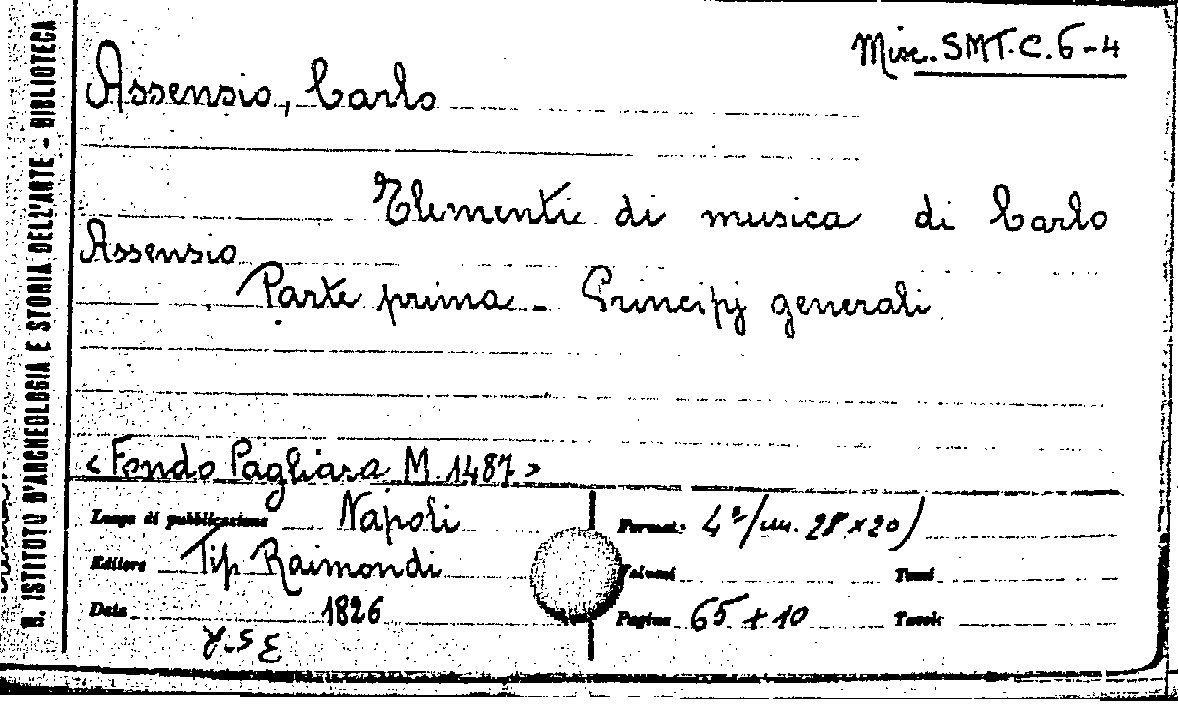 Misc. SMT.C.6-4
Assensio, Carlo
Elementi di musica di Carlo
Assensio
Parte prima - Principj generali
<Fondo Pagliara M. 1487>
Luogo di pubblicazione Napoli
Formato 4º (cm. 28 x 20)
Editore Tip Raimondi
Volumi Tomi
Data 1826
Pagine 65 + 10 Tavole
R. ISTITUTO D'ARCHEOLOGIA E STORIA DELL'ARTE - BIBLIOTECA